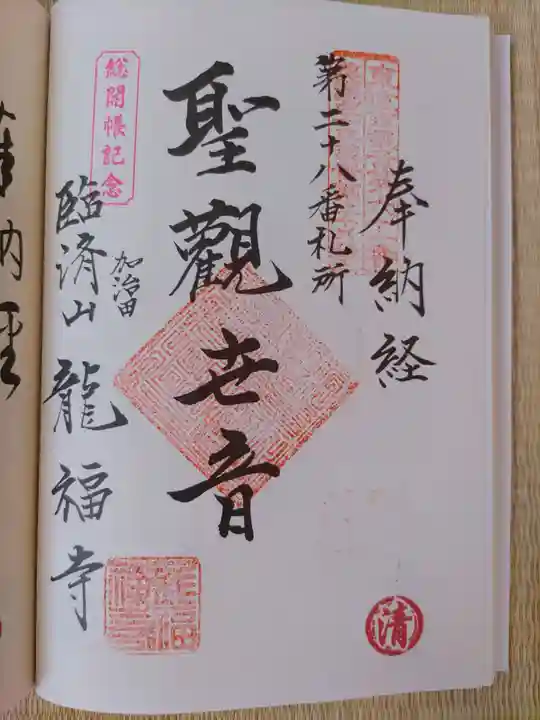 奉納経
第二十八番札所
聖觀世音
加治田
臨済山龍福寺
総開帳記念
清